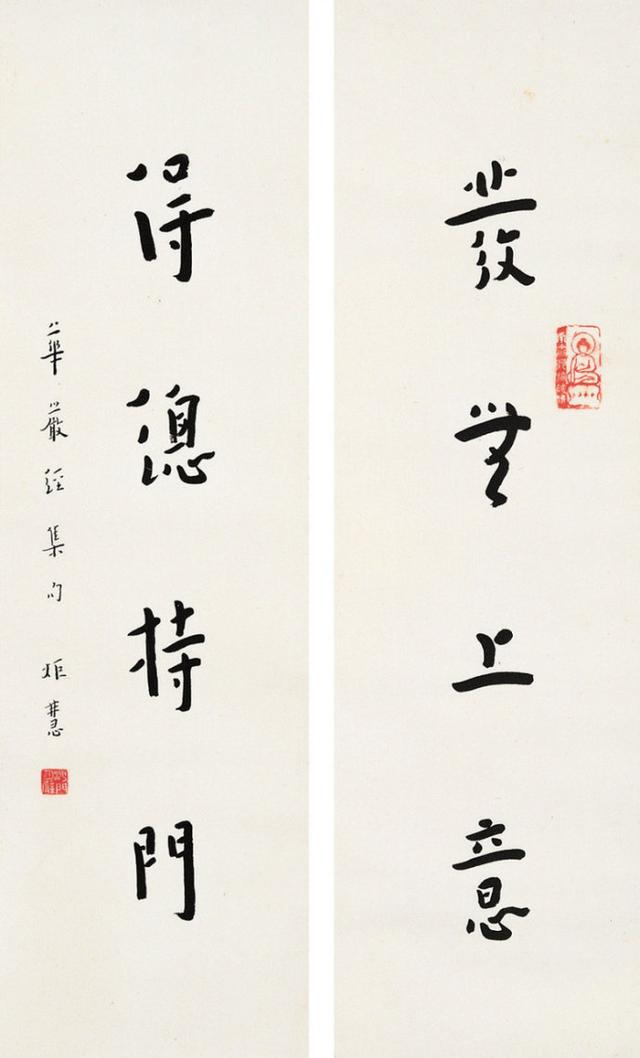 發無上意
得總持門
華嚴經集句 炬慧